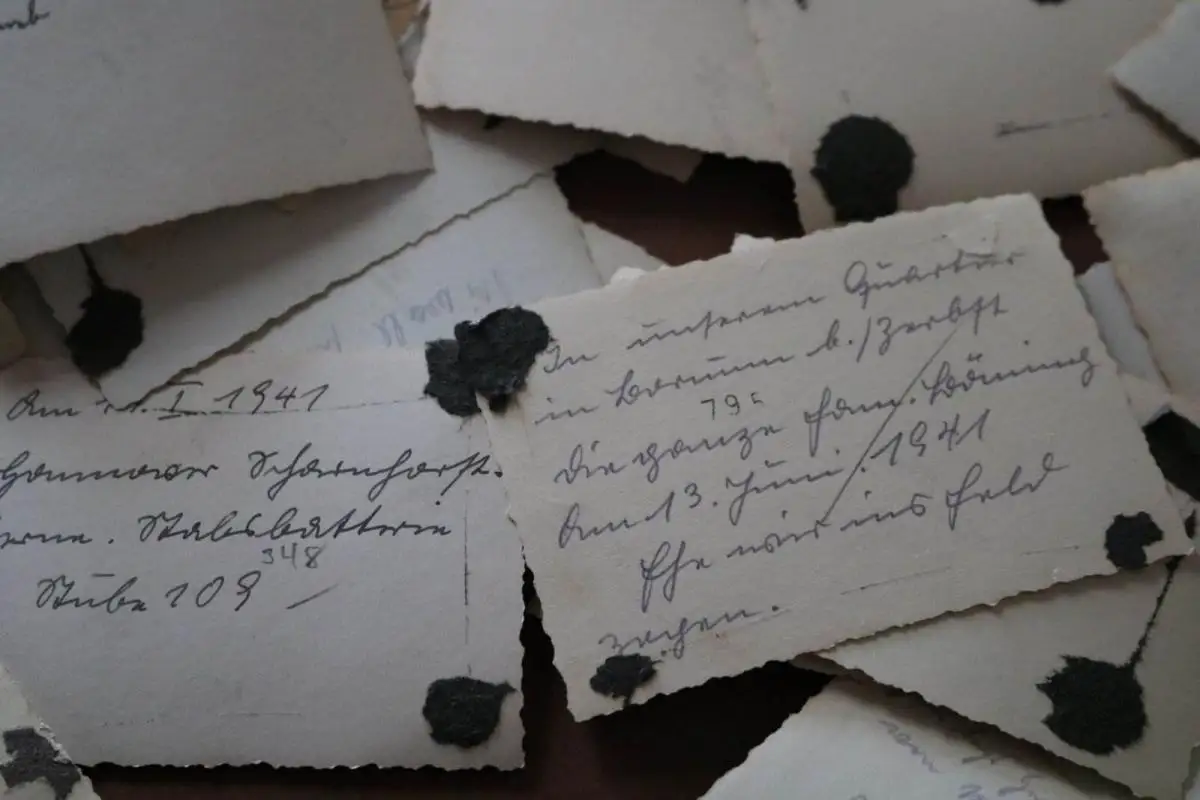 Am 1. I 1941
Hannover Scharnhorst-
erne. Stabsbatterie
348
Stube 109
In unserem Quartier
in Borum b./Zerbst
795
die ganze Fam. Böning
Am 13. Juni. 1941
Ehe wir ins Feld
zogen.